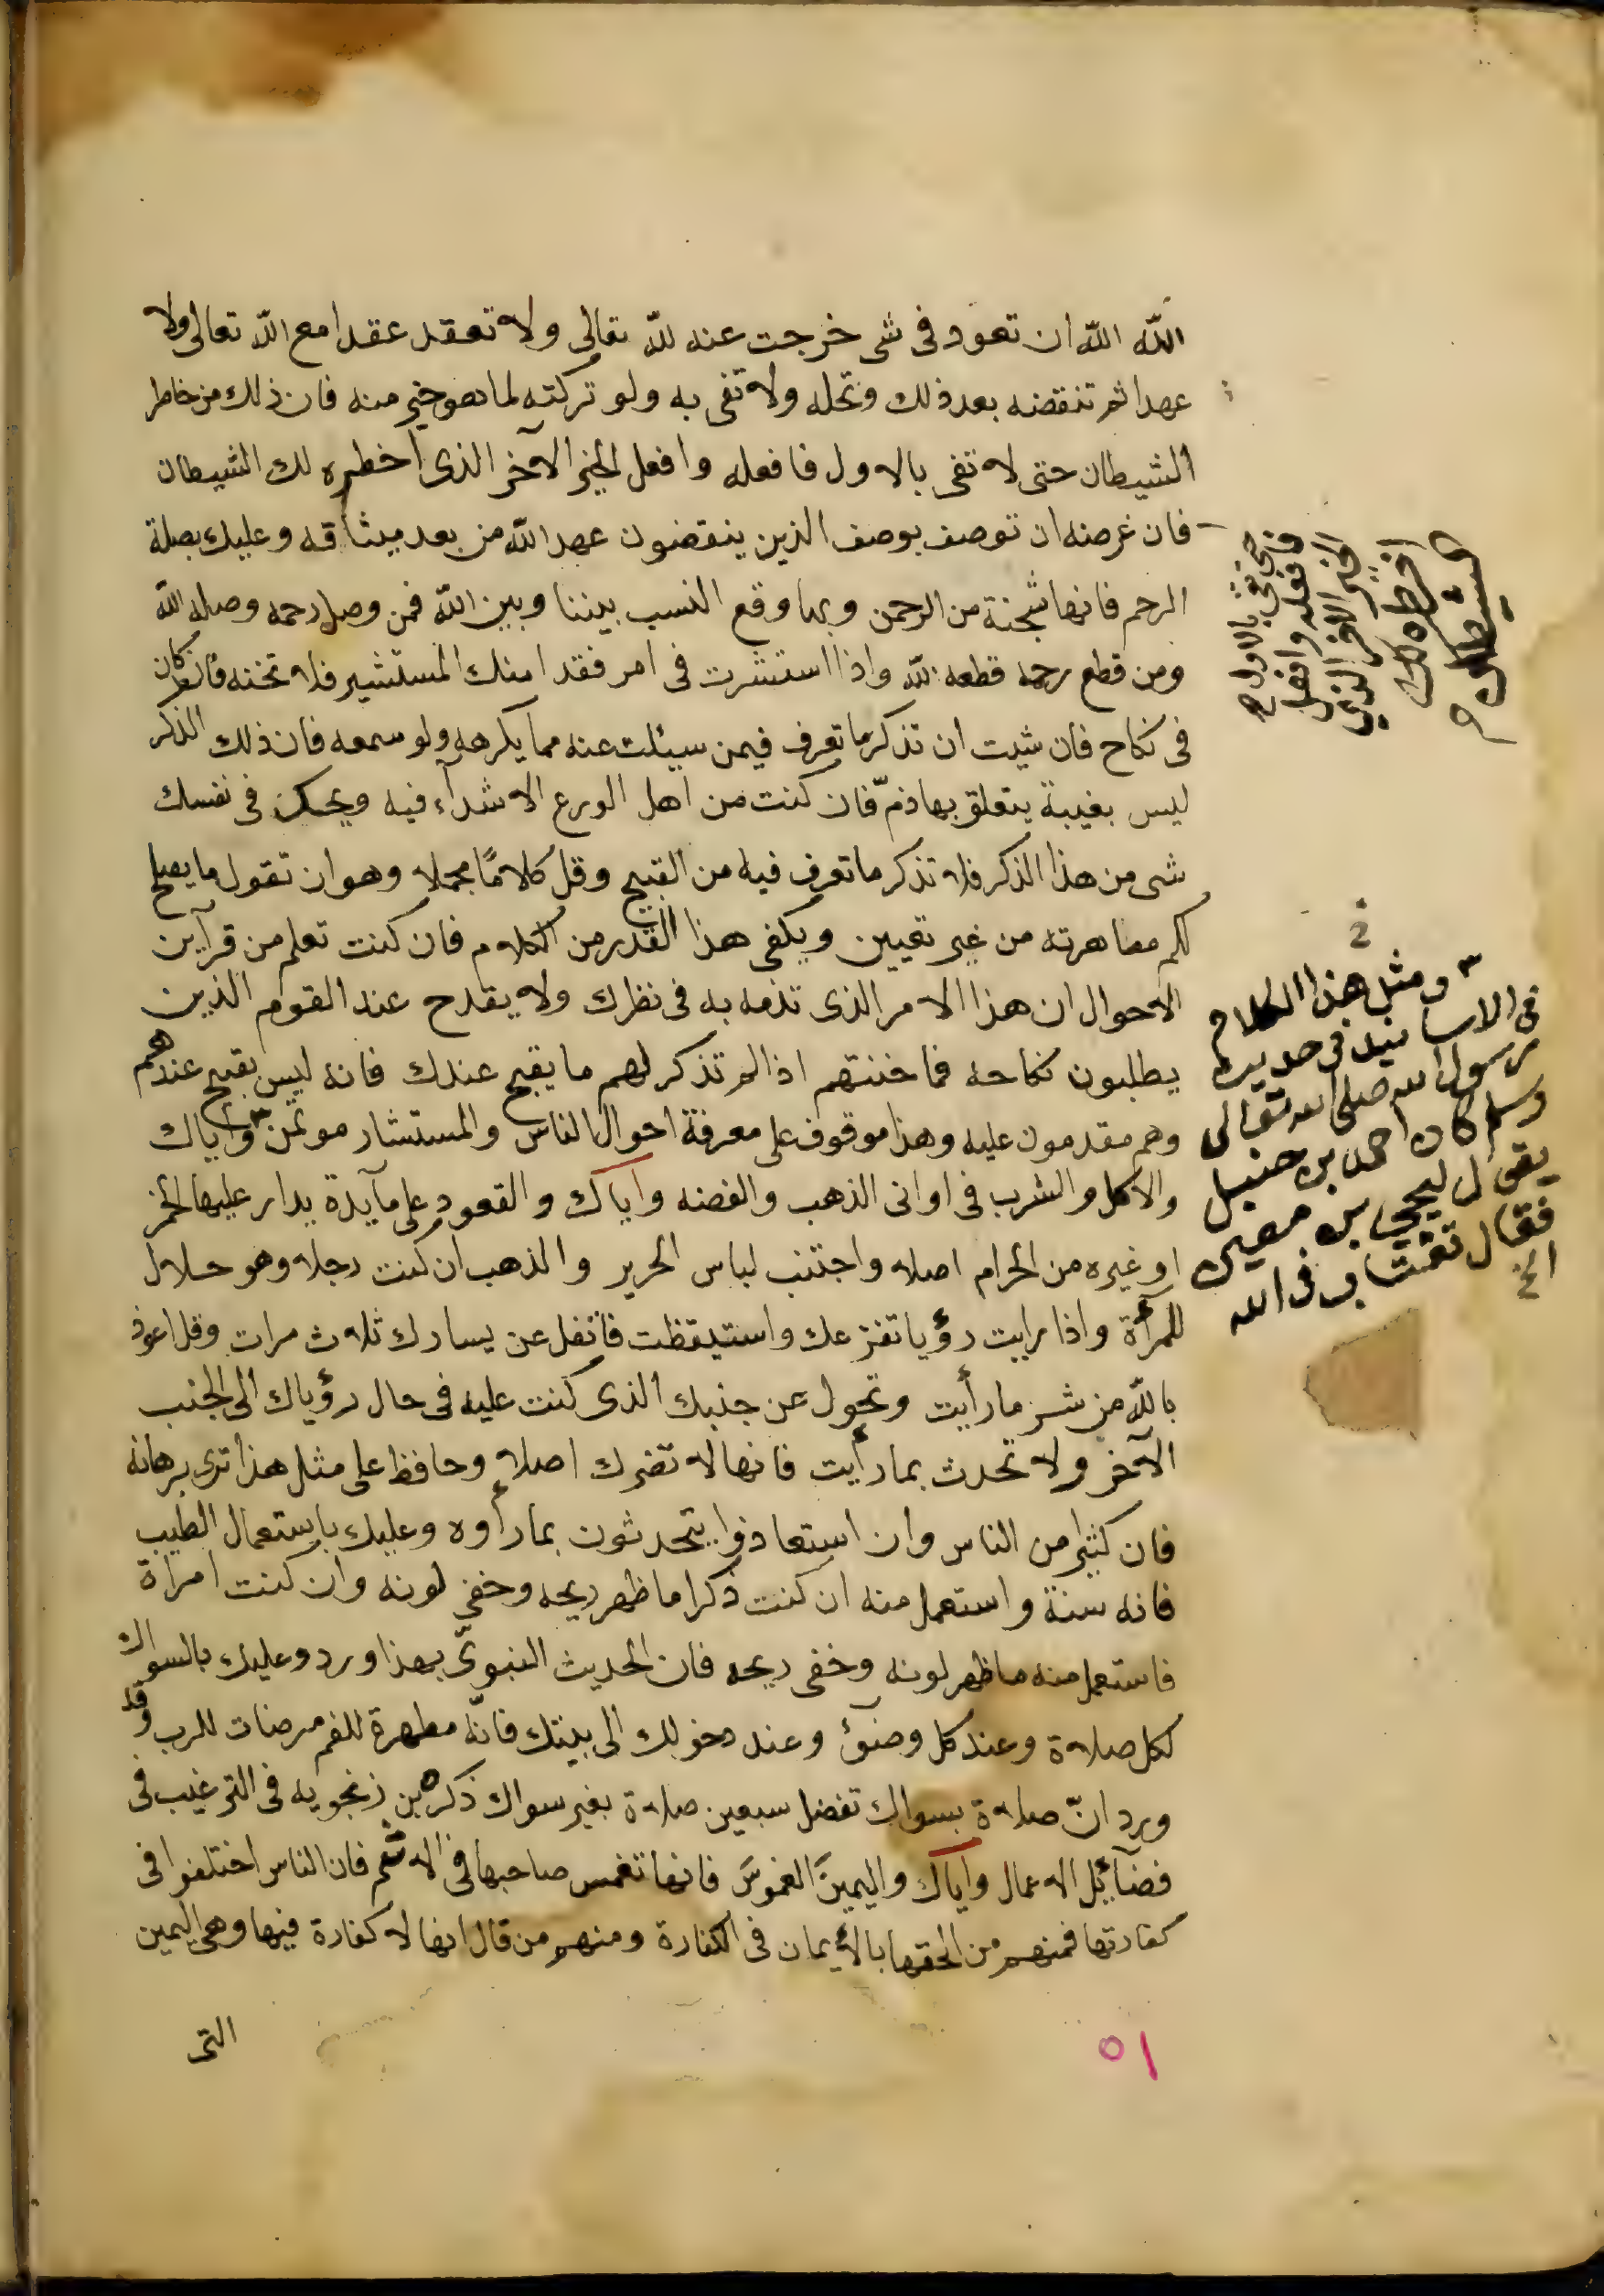 الله الله ان تعود فى شى خرجت عنه لله تعالى ولا تعقد عقدا مع الله تعالى ولا
عهدا ثم تنقضه بعد ذلك وتحله ولا تفى به ولو تركته لما هو خير منه فان ذلك من خاطر
الشيطان حتى لا تفى بالاول فافعله وافعل الخير الآخر الذى أخطره لك الشيطان
فان غرضه ان توصف بوصف الذين ينقضون عهد الله من بعد ميثاقه وعليك بصلة
الرحم فانها شجنة من الرحمن وبها وقع النسب بيننا وبين الله فمن وصل رحمه وصله الله
ومن قطع رحمه قطعه الله واذا استشرت فى امر فقد امنك المستشير فلا تخنه فان كان
فى نكاح فان شيت ان تذكر ما تعرف فيمن سيئلت عنه مما يكرهه ولو سمعه فان ذلك الذكر
ليس بغيبة يتعلق بها ذمّ فان كنت من اهل الورع الاشدآء فيه ويحك فى نفسك
شى من هذا الذكر فلا تذكر ما تعرف فيه من القبيح وقل كلامًا مجملا وهو ان تقول ما يصلح
لكم مصاهرته من غير تعيين ويكفى هذا القدر من الكلام فان كنت تعلم من قرآين
الاحوال ان هذا الامر الذى تذمه به فى نظرك ولا يقدح عند القوم الذين
يطلبون نكاحه فما خنتهم اذا لم تذكر لهم ما يقبح عندك فانه ليس بقبيح عندهم
وهم مقدمون عليه وهذا موقوف على معرفة احوال الناس والمستشار موتمن واياك
والاكل والشرب فى اوانى الذهب والفضه واياك والقعود على مآيدة يدار عليها الخمر
او غيره من الحرام اصلا واجتنب لباس الحرير والذهب ان كنت رجلا وهو حلال
للمرأة واذا رايت رؤيا تفزعك واستيقظت فاتفل عن يسارك ثلاث مرات وقل اعوذ
بالله من شر ما رأيت وتحول عن جنبك الذى كنت عليه فى حال رؤياك الى الجنب
الآخر ولا تحدث بما رأيت فانها لا تضرك اصلا وحافظ على مثل هذا ترى برهانه
فان كثيرا من الناس وان استعاذوا يتحدثون بما رأوه وعليك باستعمال الطيب
فانه سنة واستعمل منه ان كنت ذكرا ما ظهر ريحه وخفى لونه وان كنت امراة
فاستعمل منه ما ظهر لونه وخفى ريحه فان الحديث النبوىّ بهذا ورد وعليك بالسواك
لكل صلاة وعند كل وضوء وعند دخولك الى بيتك فانّه مطهرة للفم مرضات للرب وقد
ورد انّ صلاة بسواك تفضل سبعين صلاة بغير سواك ذكره بن زنجويه فى الترغيب فى
فضآئل الاعمال واياك واليمينَ الغموسَ فانها تغمس صاحبها فى الاثم فان الناس اختلفوا فى
كفارتها فمنهم من الحقها بالأيمان فى الكفارة ومنهم من قال انها لا كفارة فيها وهى اليمين
التى
٥١
حتى تفى بالاول
فافعله وافعل
الخير الآخر الذى
اخطره لك
الشيطان
ومثل هذا الكلام
فى الاسانيد فى حديث
رسول الله صلى الله تعالى
وسلم كان احمد بن حنبل
يقول ليحيى بن معين
فقال تغتاب فى الله
الخ